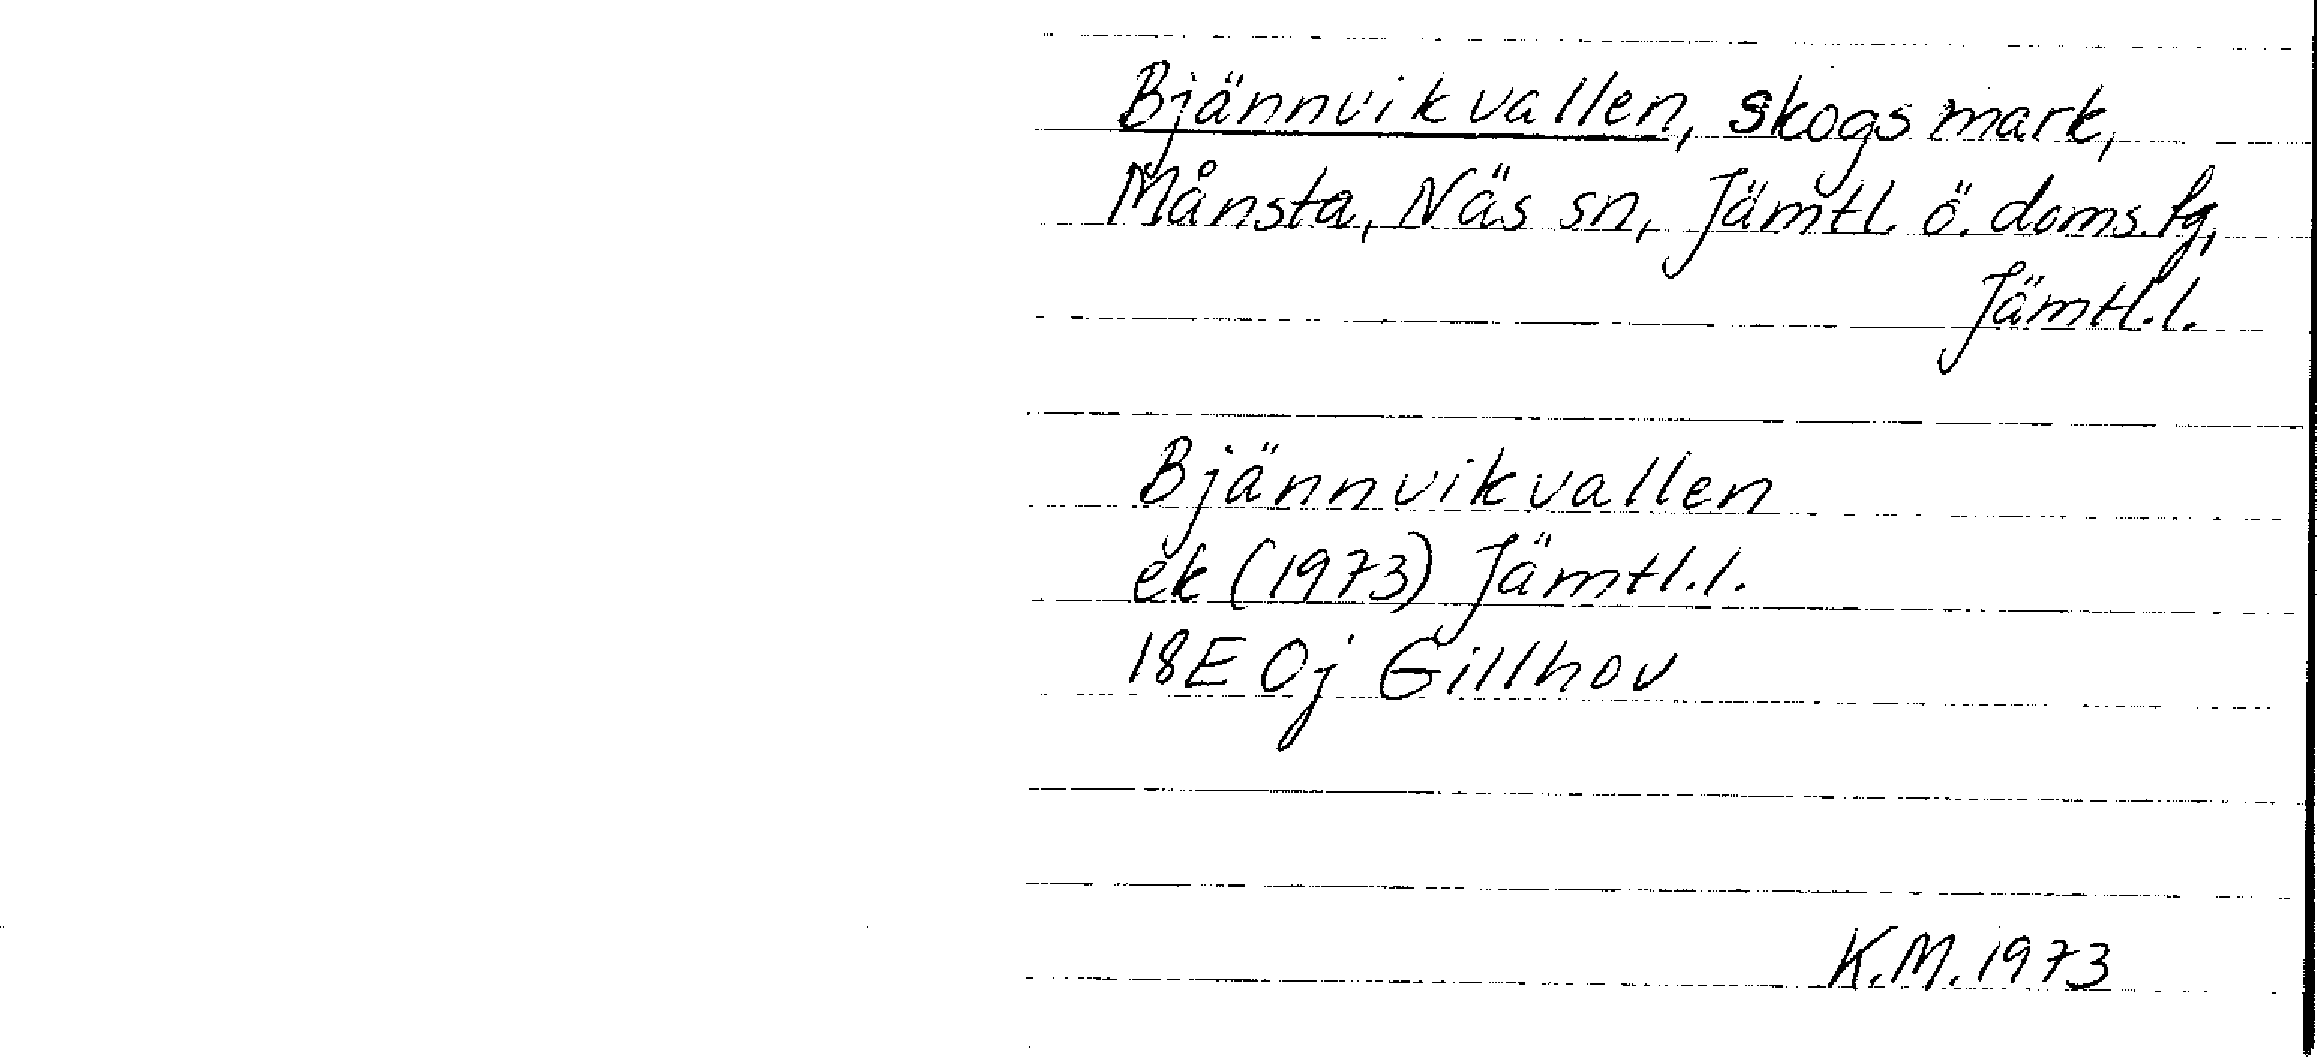 Bjännvikvallen, skogsmark,
Månsta, Näs sn, Jämtl. ö. doms. fg,
Jämtl. l.
Bjännvikvallen
ek (1973) Jämtl. l.
18E 0j Gillhov
K.M. 1973